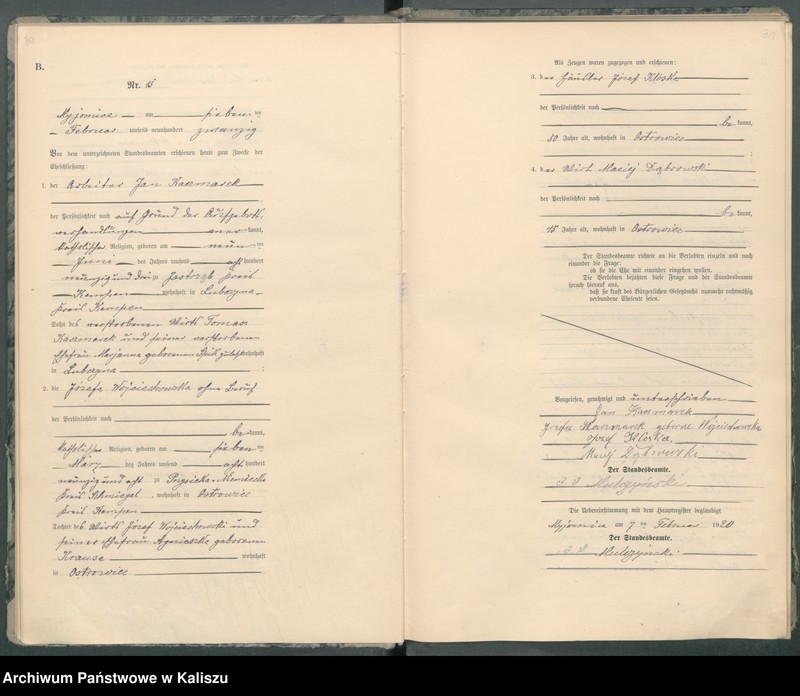 B.
Nr. 15
Myjomice am sieben ten
Februar tausend neunhundert zwanzig
Vor dem unterzeichneten Standesbeamten erschienen heute zum Zwecke der
Eheschließung:
1. der Arbeiter Jan Kaczmarek
der Persönlichkeit nach auf Grund der Aufgebots-
verhandlungen aner kannt,
katholischer Religion, geboren am neun ten
Juni des Jahres tausend acht hundert
neunzig und drei zu Jastrzeb Kreis
Kempen wohnhaft in Lubczyna
Kreis Kempen
Sohn des verstorbenen Wirts Tomasz
Kaczmarek und seiner verstorbenen
Ehefrau Marjanna geborenen zuletzt wohnhaft
in Lubczyna :
2. die Józefa Wojciechowska ohne Beruf
der Persönlichkeit nach
be kannt,
katholischer Religion, geboren am sieben ten
März des Jahres tausend acht hundert
neunzig und acht zu Przysieka Niemiecka
Kreis Schmiegel, wohnhaft in Ostrowiec
Kreis Kempen
Tochter des Wirts Józef Wojciechowski und
seiner Ehefrau Agnieszka geborenen
Krause wohnhaft
in Ostrowiec
Als Zeugen waren zugezogen und erschienen:
3. der Häusler Józef Kloska
der Persönlichkeit nach
be kannt,
50 Jahre alt, wohnhaft in Ostrowiec
;
4. der Wirt Maciej Dąbrowski
der Persönlichkeit nach
be kannt,
45 Jahre alt, wohnhaft in Ostrowiec
Der Standesbeamte richtete an die Verlobten einzeln und nach
einander die Frage:
ob sie die Ehe mit einander eingehen wollen.
Die Verlobten bejahten diese Frage und der Standesbeamte
sprach hierauf aus,
daß sie kraft des Bürgerlichen Gesetzbuchs nunmehr rechtmäßig
verbundene Eheleute seien.
Vorgelesen, genehmigt und unterschrieben
Jan Kaczmarek
Józefa Kaczmarek geborene Wojciechowska
Józef Kloska
Maciej Dąbrowski
Der Standesbeamte.
Mulczyński
Die Uebereinstimmung mit dem Hauptregister beglaubigt
Myjomice am 7 ten Februar 1920
Der Standesbeamte.
Mulczyński
Archiwum Państwowe w Kaliszu